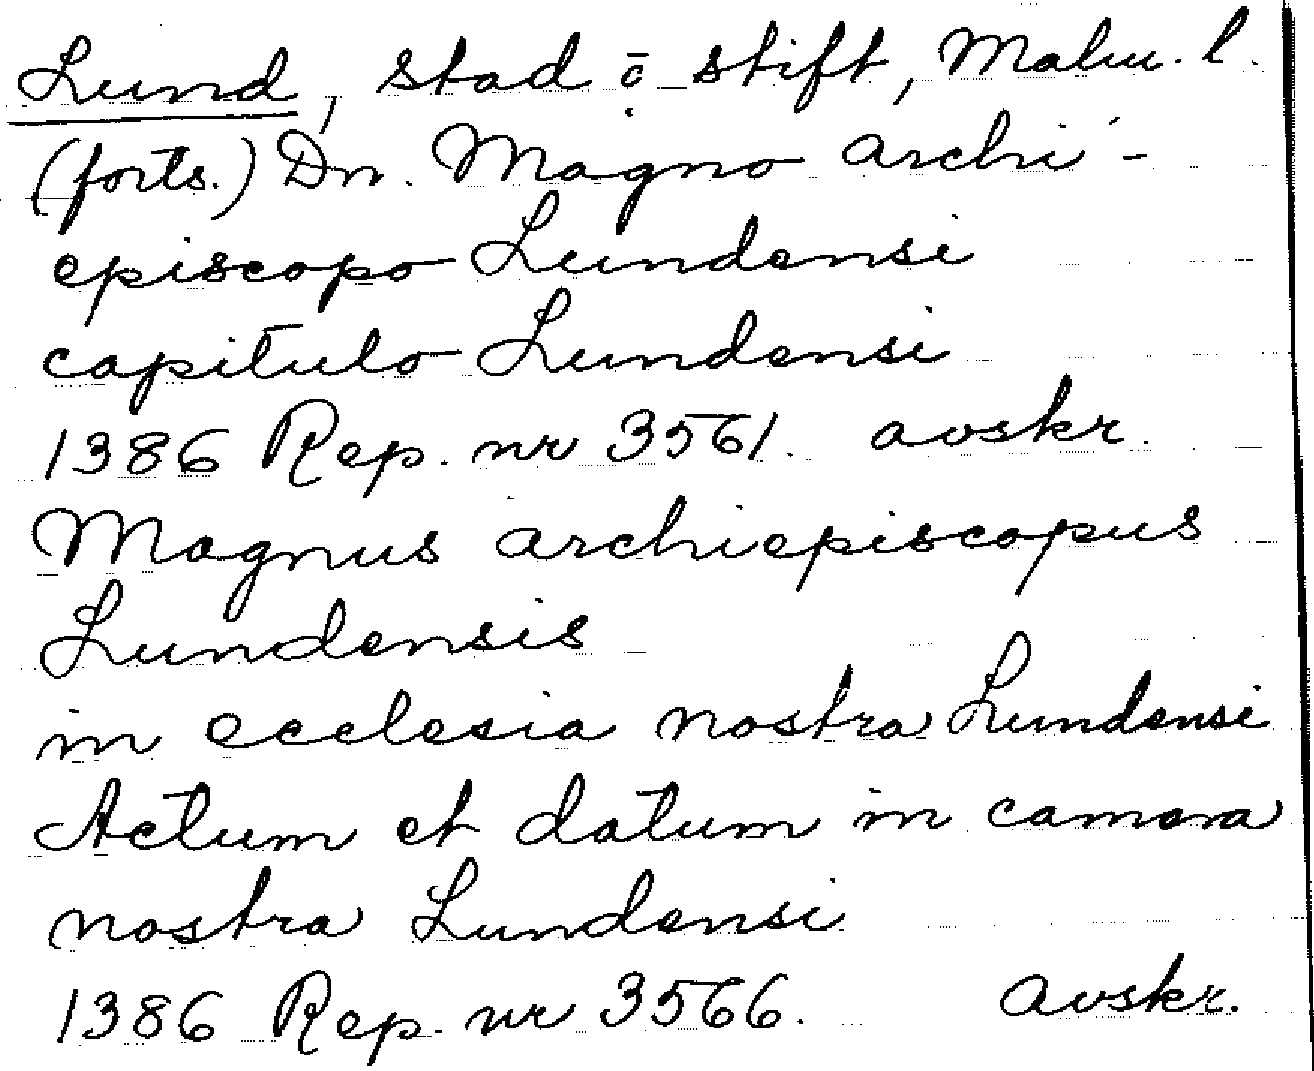 Lund, stad o stift, Malm. l.
(forts.) Dn. Magno archi-
episcopo Lundensi
capitulo Lundensi
1386 Rep. nr 3561. avskr.
Magnus archiepiscopus
Lundensis
in ecclesia nostra Lundensi
Actum et datum in camera
nostra Lundensi
1386 Rep. nr 3566. avskr.